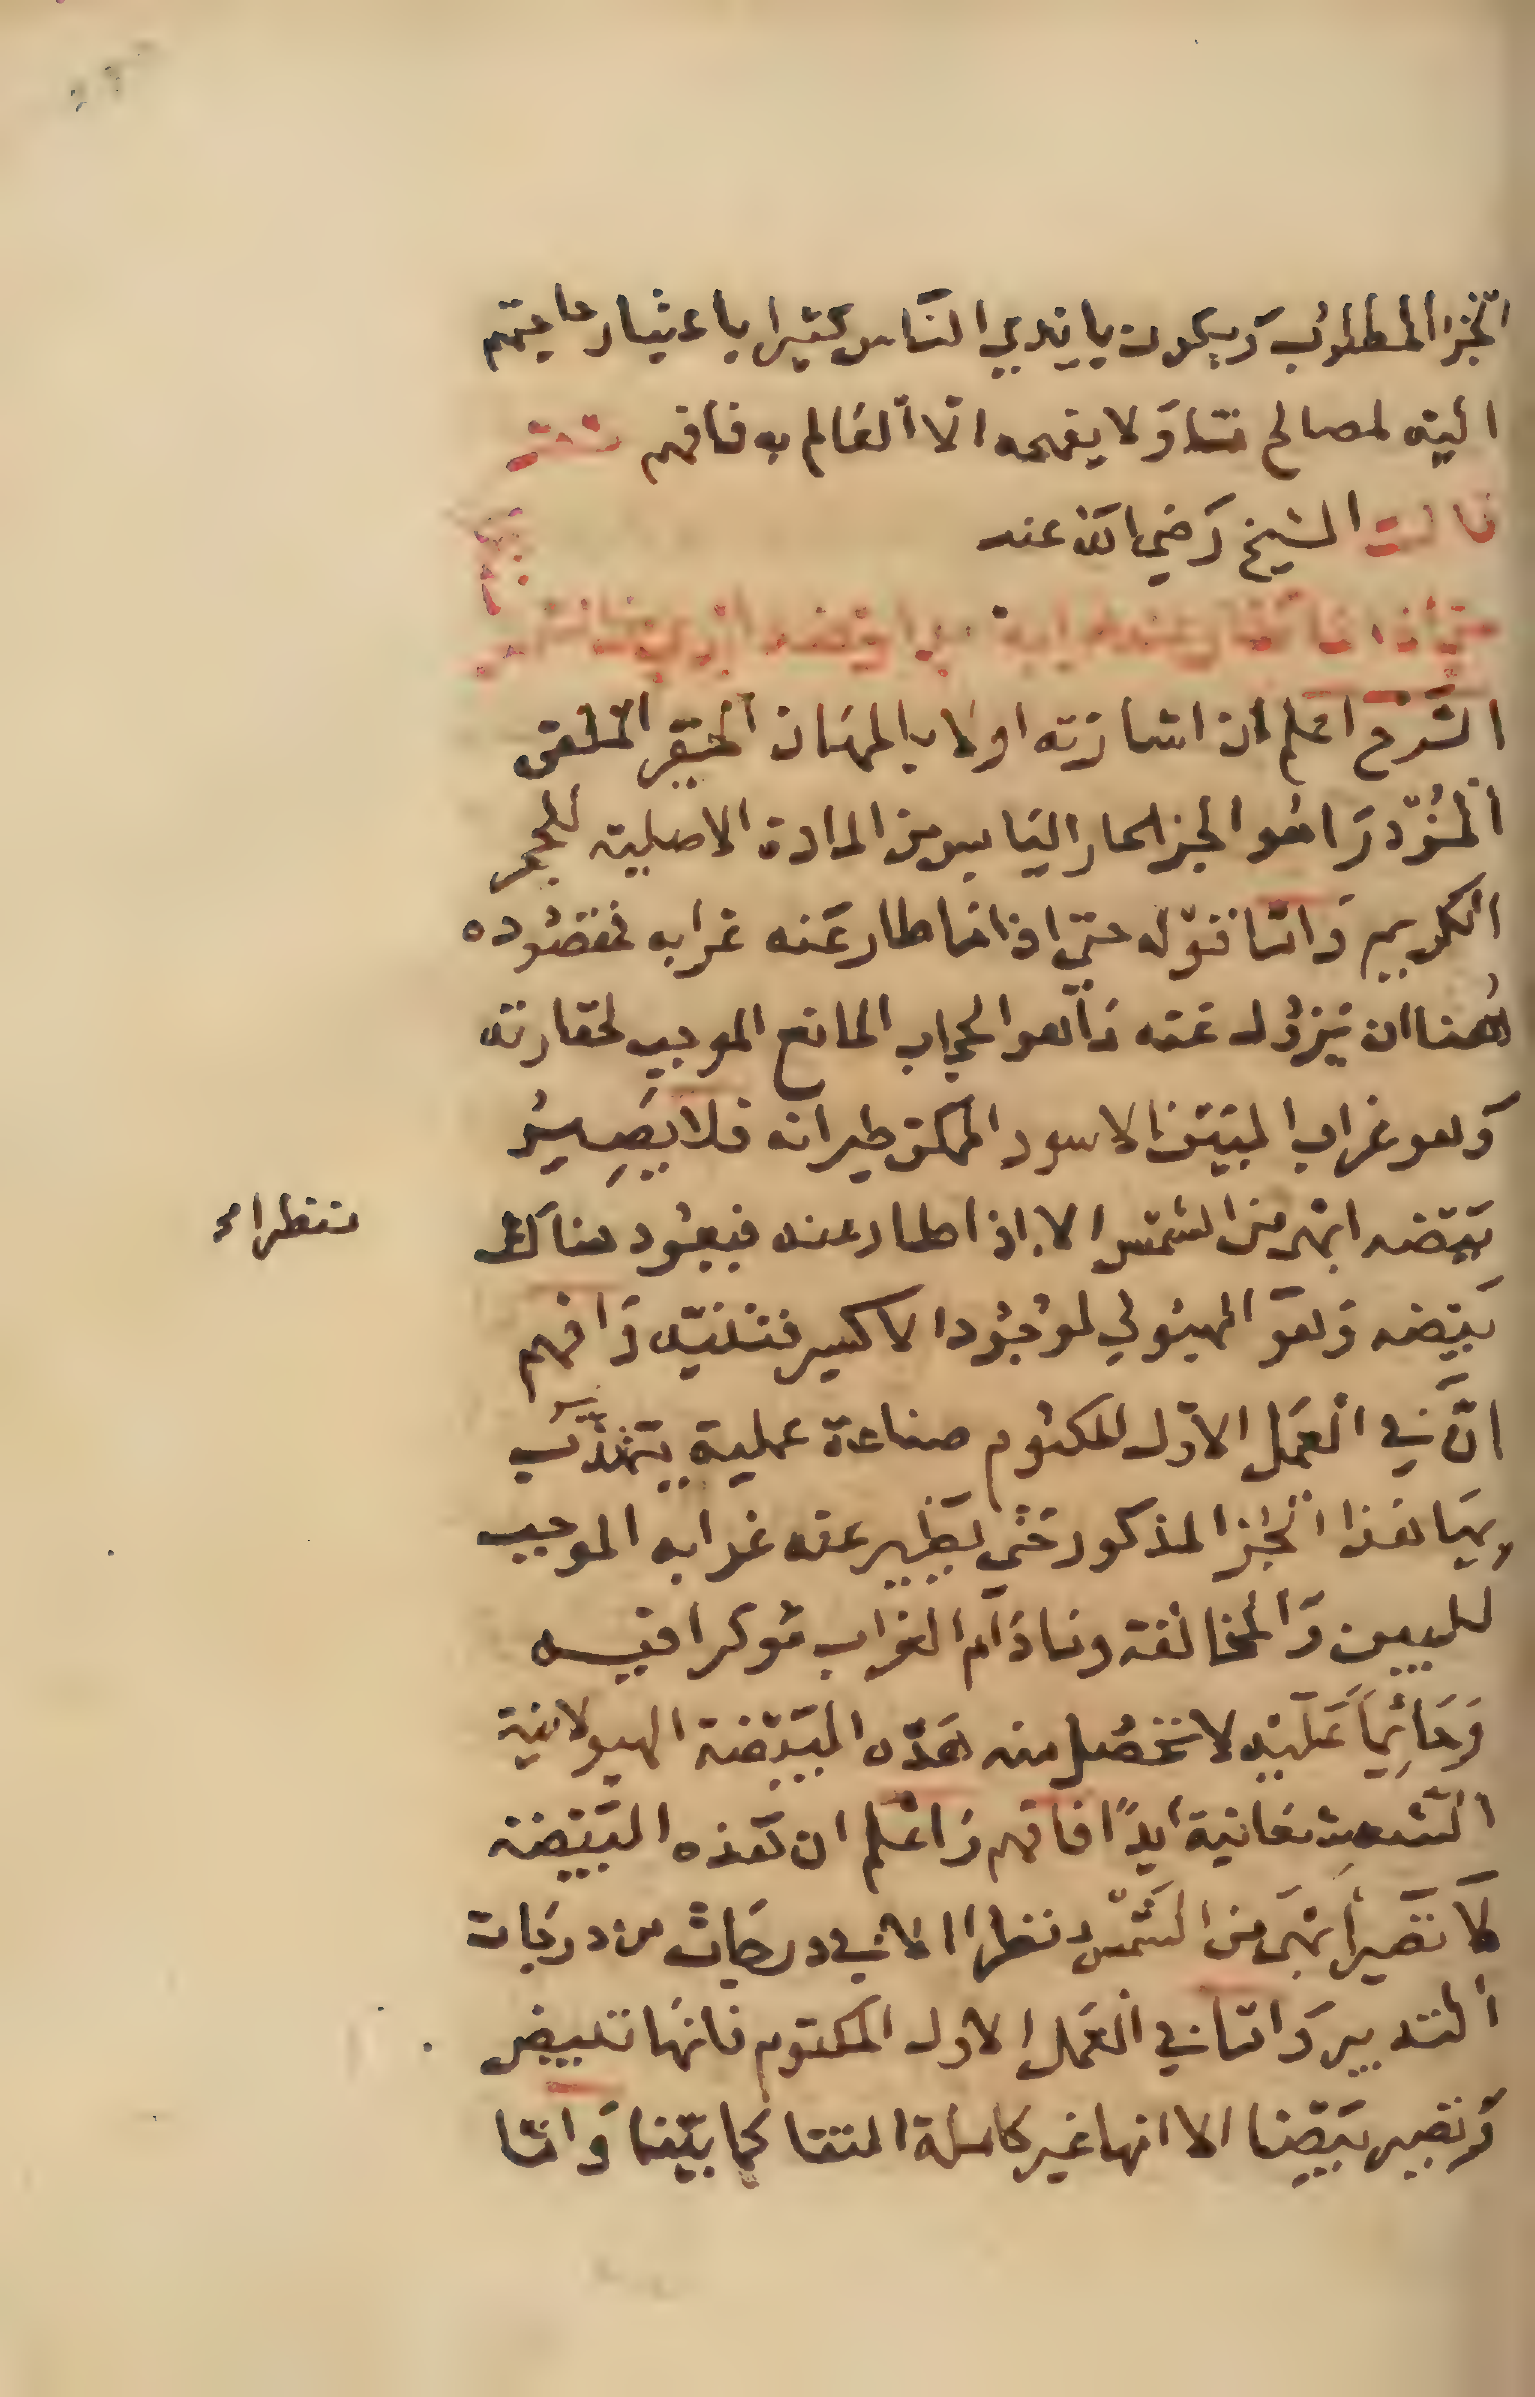 الجز المطلوب ويكون بايدي الناس كثيرا باعتبار حاجتهم
اليه لمصالح شتا ولا يفهمه الا العالم به فافهم
قال الشيخ رضي الله عنه
حتى اذا ما طار عنه غرابه
الشرح اعلم ان اشارته اولا بالمهان الحقير الملقى
المزدرا هو الجز الحار اليابس من المادة الاصلية للحجر
الكريم واما قوله حتى اذا ما طار عنه غرابه فمقصوده
هنا ان يزول عنه ذالك الحجاب المانع الموجب لحقارته
وهو غراب البين الاسود الممكن طيرانه فلا يصير
بيضه ابهى من الشمس الا اذا طار عنه فيعود هناك
منظرا
بيضه وهو الهيولي لوجود الاكسير فتنبه وافهم
ان في العمل الاول المكتوم صناعة عملية يتهذب
بها هذا الجز المذكور حتى يطير عنه غرابه الموجب
للبين والمخالفة وما دام الغراب موكرا فيه
وحائما عليه لا تحصل منه هذه البيضة الهيولانية
الشعشعانية ابدا فافهم واعلم ان هذه البيضة
لا تصير ابهى من الشمس منظرا الا في درجات من درجات
التدبير واما في العمل الاول المكتوم فانها تبيض
وتصير بيضا الا انها غير كاملة النقا كما بينا واما